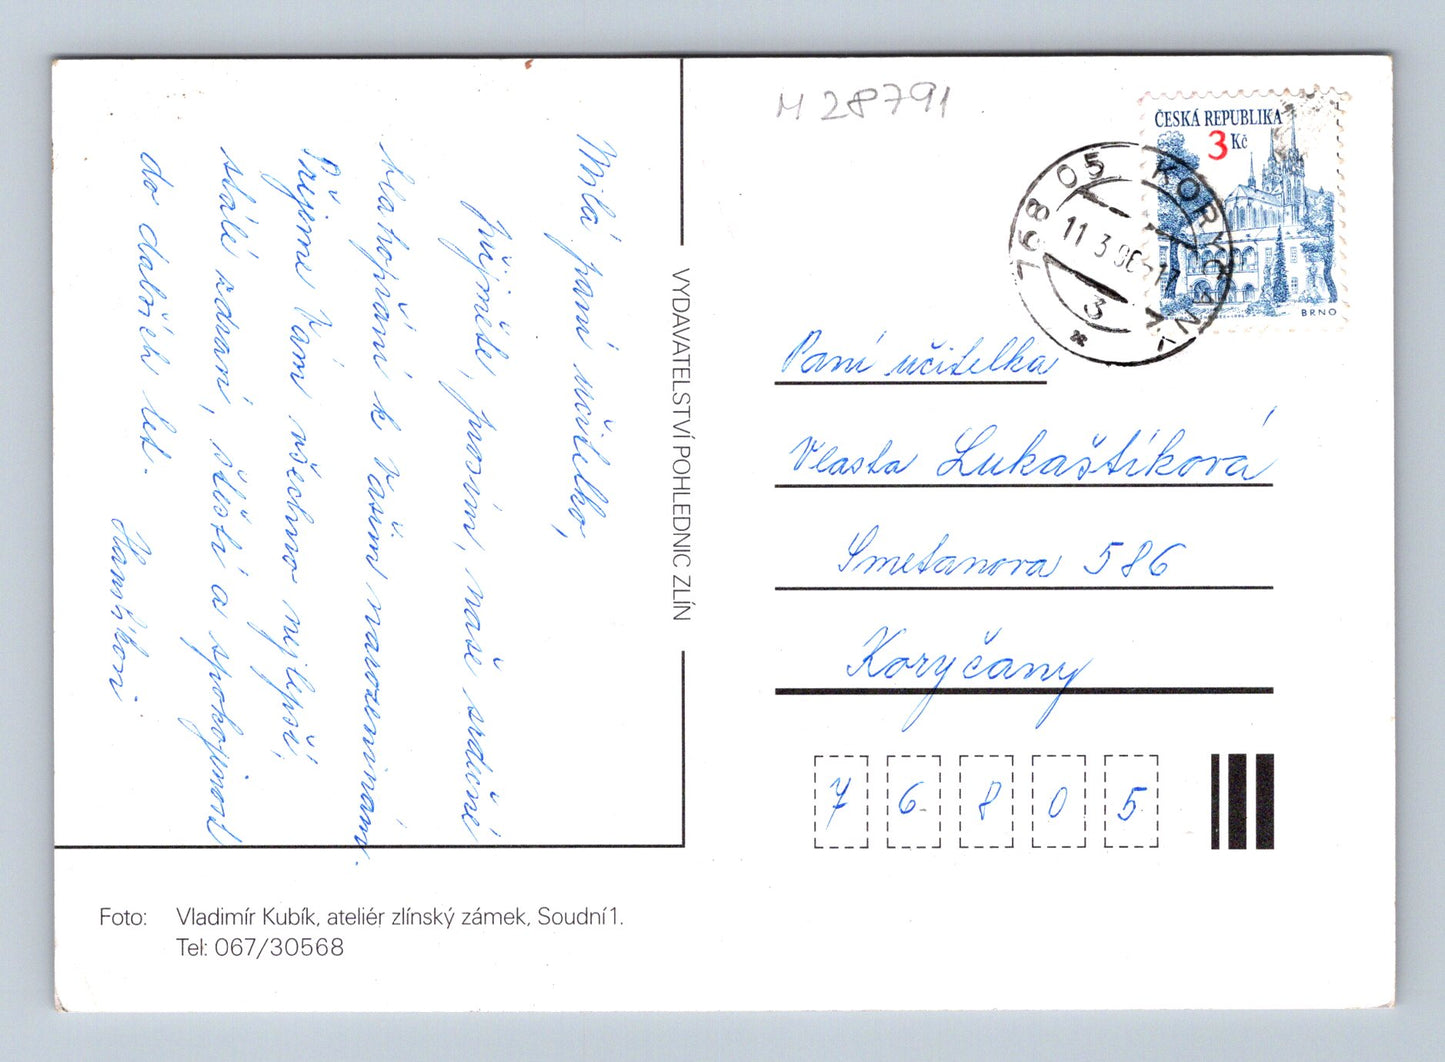 M 28791
ČESKÁ REPUBLIKA
3 Kč
BRNO
768 05 KORYČANY
11.3.96-17
3
Milá paní učitelko,
přijměte, prosím, naše srdečné
blahopřání k Vašim narozeninám.
Přejeme Vám všechno nejlepší,
stálé zdraví, štěstí a spokojenost
do dalších let.
VYDAVATELSTVÍ POHLEDNIC ZLÍN
Paní učitelka
Vlasta Lukaštíková
Smetanova 586
Koryčany
7 6 8 0 5
Foto: Vladimír Kubík, ateliér zlínský zámek, Soudní 1.
Tel: 067/30568